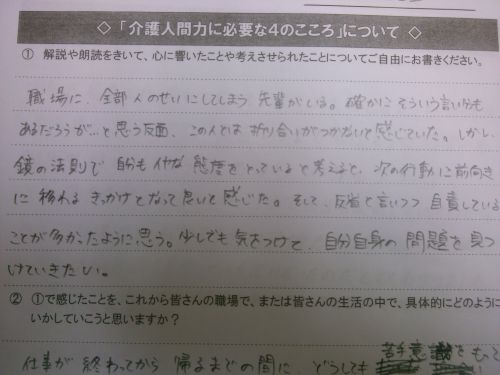 ◇「介護人間力に必要な4のこころ」について ◇
① 解説や朗読をきいて、心に響いたことや考えさせられたことについてご自由にお書きください。
職場に、全部人のせいにしてしまう先輩がいる。確かにそういう言い分も
あるだろうが…と思う反面、この人とは折り合いがつかないと感じていた。しかし、
鏡の法則で自分もイヤな態度をとっていると考えると、次の行動に前向き
に移れるきっかけとなって良いと感じた。そして、反省と言いつつ自責している
ことが多かったように思う。少しでも気をつけて、自分自身の問題を見つ
けていきたい。
② ①で感じたことを、これから皆さんの職場で、または皆さんの生活の中で、具体的にどのように
いかしていこうと思いますか？
仕事が終わってから帰るまでの間に どうしても苦手意識をもって